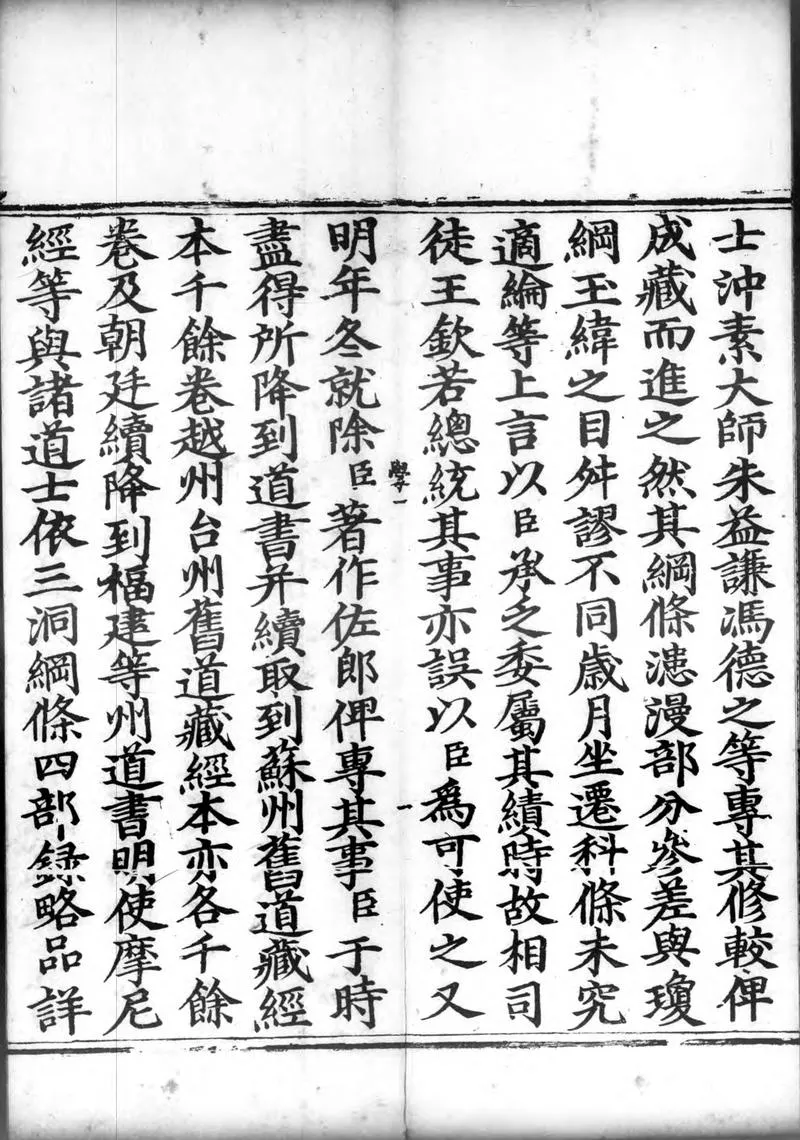 士沖素大師朱益謙馮德之等專其修較俾
成藏而進之然其綱條漶漫部分參差與瓊
綱玉緯之目舛謬不同歲月坐遷科條未究
適綸等上言以臣承乏委屬其績時故相司
徒王欽若總統其事亦誤以臣為可使之又
學一
明年冬就除臣著作佐郎俾專其事臣于時
盡得所降到道書并續取到蘇州舊道藏經
本千餘卷越州台州舊道藏經本亦各千餘
卷及朝廷續降到福建等州道書明使摩尼
經等與諸道士依三洞綱條四部録略品詳